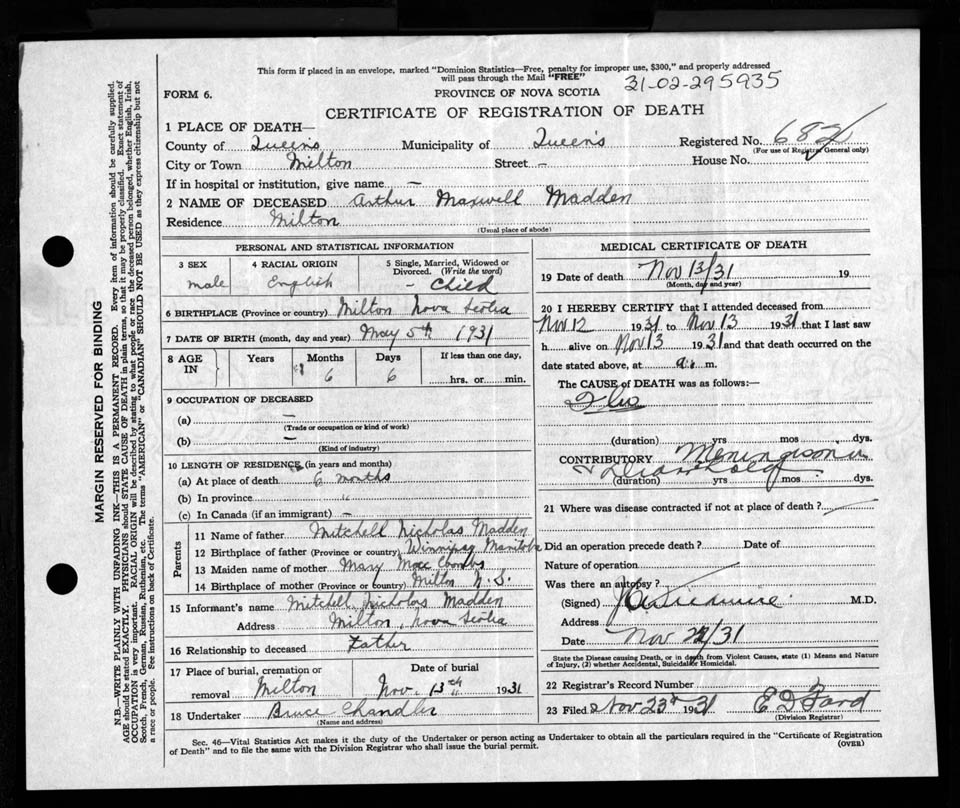 This form if placed in an envelope, marked "Dominion Statistics—Free, penalty for improper use, $300," and properly addressed
will pass through the Mail "FREE"
31-02-295935
FORM 6.
PROVINCE OF NOVA SCOTIA
CERTIFICATE OF REGISTRATION OF DEATH
1 PLACE OF DEATH—
County of Queens Municipality of Queen's Registered No. 682
(For use of Registrar General only)
City or Town Milton Street — House No.
If in hospital or institution, give name —
2 NAME OF DECEASED Arthur Maxwell Madden
Residence Milton
(Usual place of abode)
PERSONAL AND STATISTICAL INFORMATION
3 SEX 4 RACIAL ORIGIN 5 Single, Married, Widowed or
Divorced. (Write the word)
male English - Child
6 BIRTHPLACE (Province or country) Milton Nova Scotia
7 DATE OF BIRTH (month, day and year) May 5th 1931
8 AGE IN Years Months Days If less than one day,
6 6 hrs. or min.
9 OCCUPATION OF DECEASED
(a) —
(Trade or occupation or kind of work)
(b) —
(Kind of industry)
10 LENGTH OF RESIDENCE (in years and months)
(a) At place of death 6 months
(b) In province "
(c) In Canada (if an immigrant) —
Parents
11 Name of father Mitchell Nicholas Madden
12 Birthplace of father (Province or country) Winnipeg Manitoba
13 Maiden name of mother Mary
14 Birthplace of mother (Province or country) Milton N.S.
15 Informant's name Mitchell Nicholas Madden
Address Milton, Nova Scotia
16 Relationship to deceased Father
17 Place of burial, cremation or Date of burial
removal Milton Nov. 13th 1931
18 Undertaker Bruce Chandler
(Name and address)
MEDICAL CERTIFICATE OF DEATH
19 Date of death Nov 13/31 19
(Month, day and year)
20 I HEREBY CERTIFY that I attended deceased from
Nov 12 1931 to Nov 13 1931 that I last saw
h alive on Nov 13 1931 and that death occurred on the
date stated above, at m.
The CAUSE of DEATH was as follows:—
Flu
(duration) yrs mos dys.
CONTRIBUTORY
(duration) yrs mos dys.
21 Where was disease contracted if not at place of death?
Did an operation precede death? Date of
Nature of operation
Was there an autopsy?
(Signed) M.D.
Address
Date Nov /31
State the Disease causing Death, or in death from Violent Causes, state (1) Means and Nature
of Injury, (2) whether Accidental, Suicidal or Homicidal.
22 Registrar's Record Number
23 Filed Nov 23rd 1931 E D Ford
(Division Registrar)
Sec. 46—Vital Statistics Act makes it the duty of the Undertaker or person acting as Undertaker to obtain all the particulars required in the "Certificate of Registration
of Death" and to file the same with the Division Registrar who shall issue the burial permit.
(OVER)
MARGIN RESERVED FOR BINDING
N.B.—WRITE PLAINLY WITH UNFADING INK—THIS IS A PERMANENT RECORD. Every item of information should be carefully supplied.
AGE should be stated EXACTLY. PHYSICIANS should STATE CAUSE OF DEATH in plain terms, so that it may be properly classified. Exact statement of
OCCUPATION is very important. RACIAL ORIGIN will be described by stating to what people or race the deceased person belonged, whether English, Irish,
Scotch, French, German, Russian, Ruthenian, etc. The terms "AMERICAN" or "CANADIAN" SHOULD NOT BE USED as they express citizenship but not
a race or people. See instructions on back of Certificate.